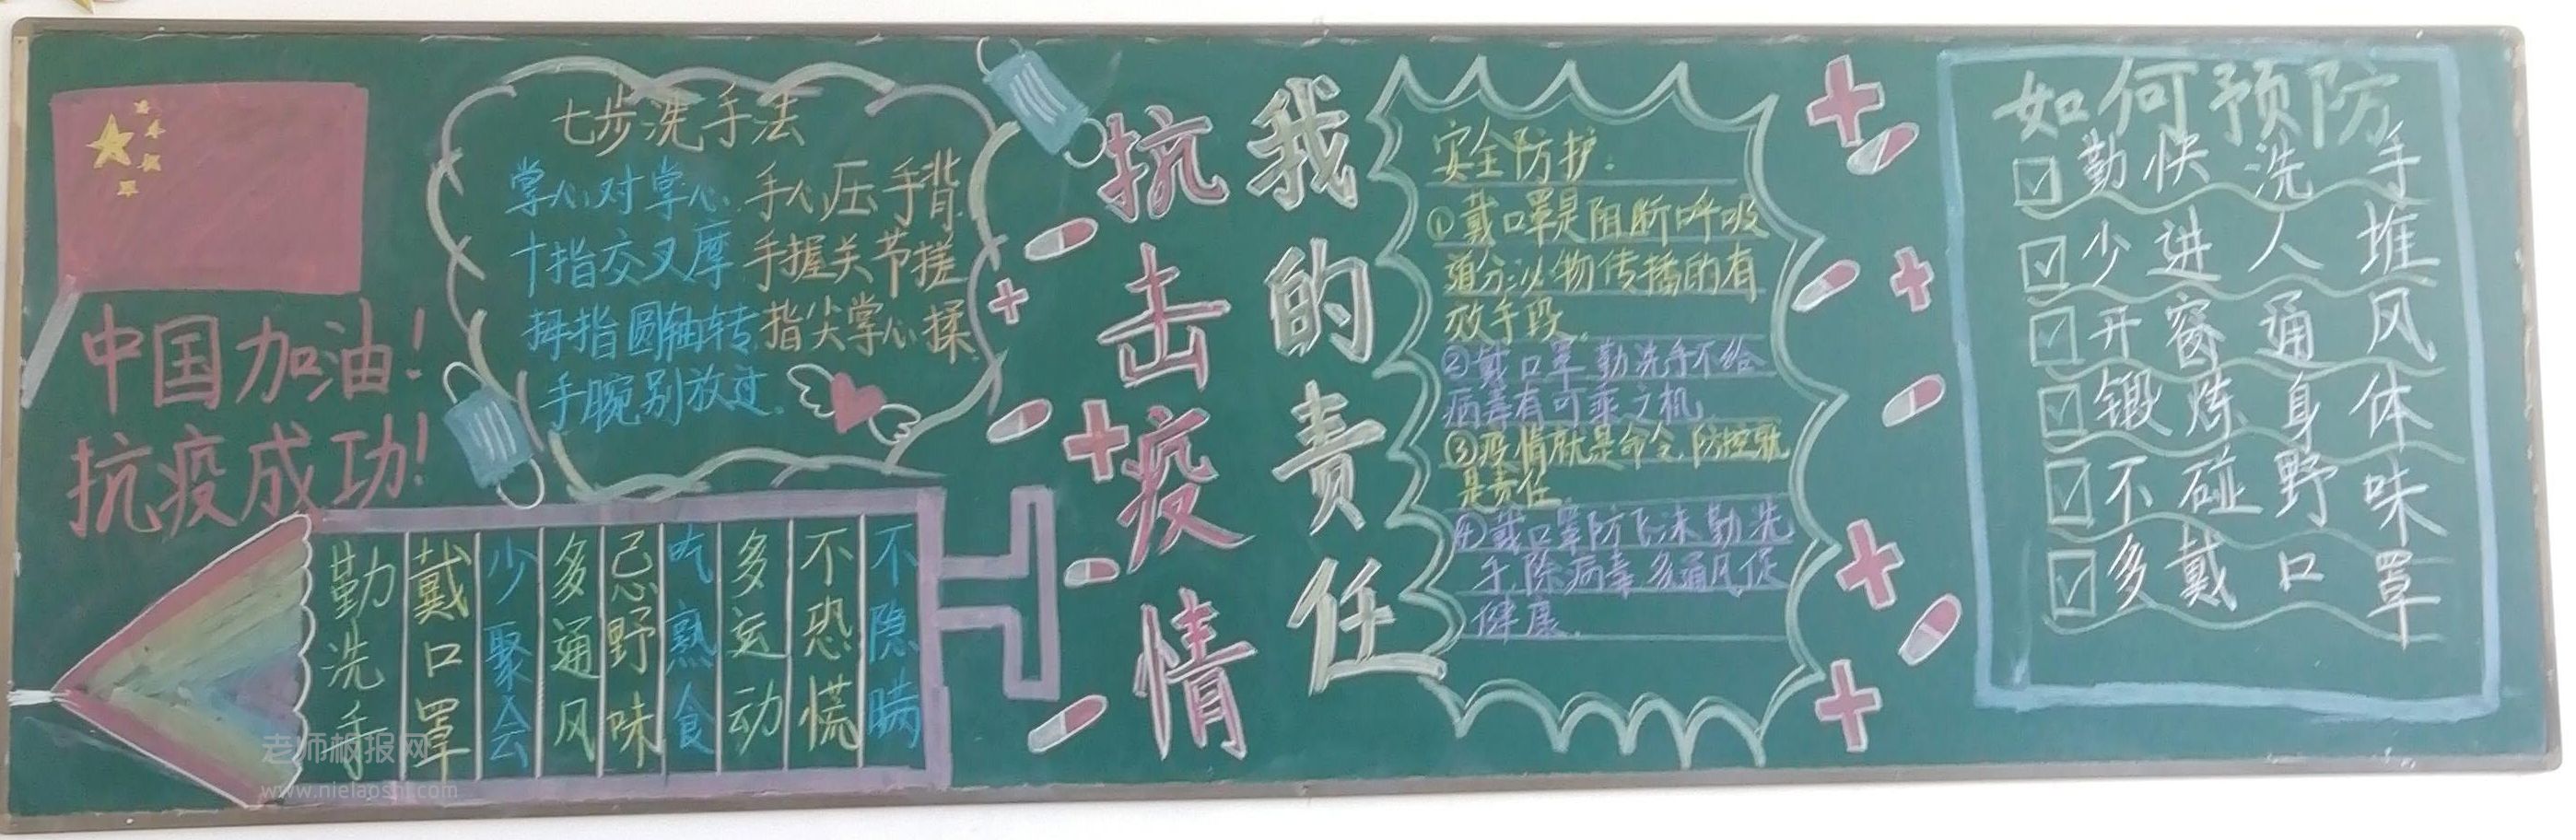 中国加油！
抗疫成功！
七步洗手法
掌心对掌心 手心压手背
十指交叉摩 手握关节搓
拇指圆轴转 指尖掌心揉
手腕别放过
勤洗手
戴口罩
少聚会
多通风
忌野味
吃熟食
多运动
不恐慌
不隐瞒
抗击疫情
我的责任
安全防护：
①戴口罩是阻断呼吸
道分泌物传播的有
效手段
②戴口罩勤洗手不给
病毒有可乘之机
③疫情就是命令 防控就
是责任
④戴口罩防飞沫勤洗
手除病毒多通风促
健康
如何预防
勤快洗手
少进人堆
开窗通风
锻炼身体
不碰野味
多戴口罩
老师板报网
www.nielaoshi.com